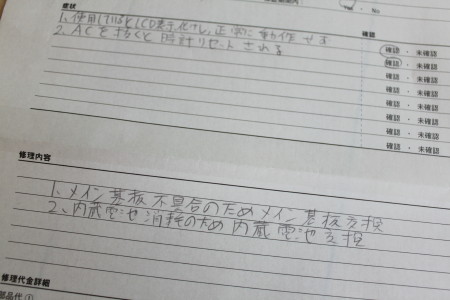 ・No
症状
確認
1.使用しているとLCD表示化けし、正常に動作せず
確認 ・ 未確認
2.ACを抜くと時計リセットされる
確認 ・ 未確認
確認 ・ 未確認
確認 ・ 未確認
確認 ・ 未確認
確認 ・ 未確認
確認 ・ 未確認
確認 ・ 未確認
修理内容
1、メイン基板不具合のためメイン基板交換
2、内蔵電池消耗のため内蔵電池交換
修理代金詳細
部品代①